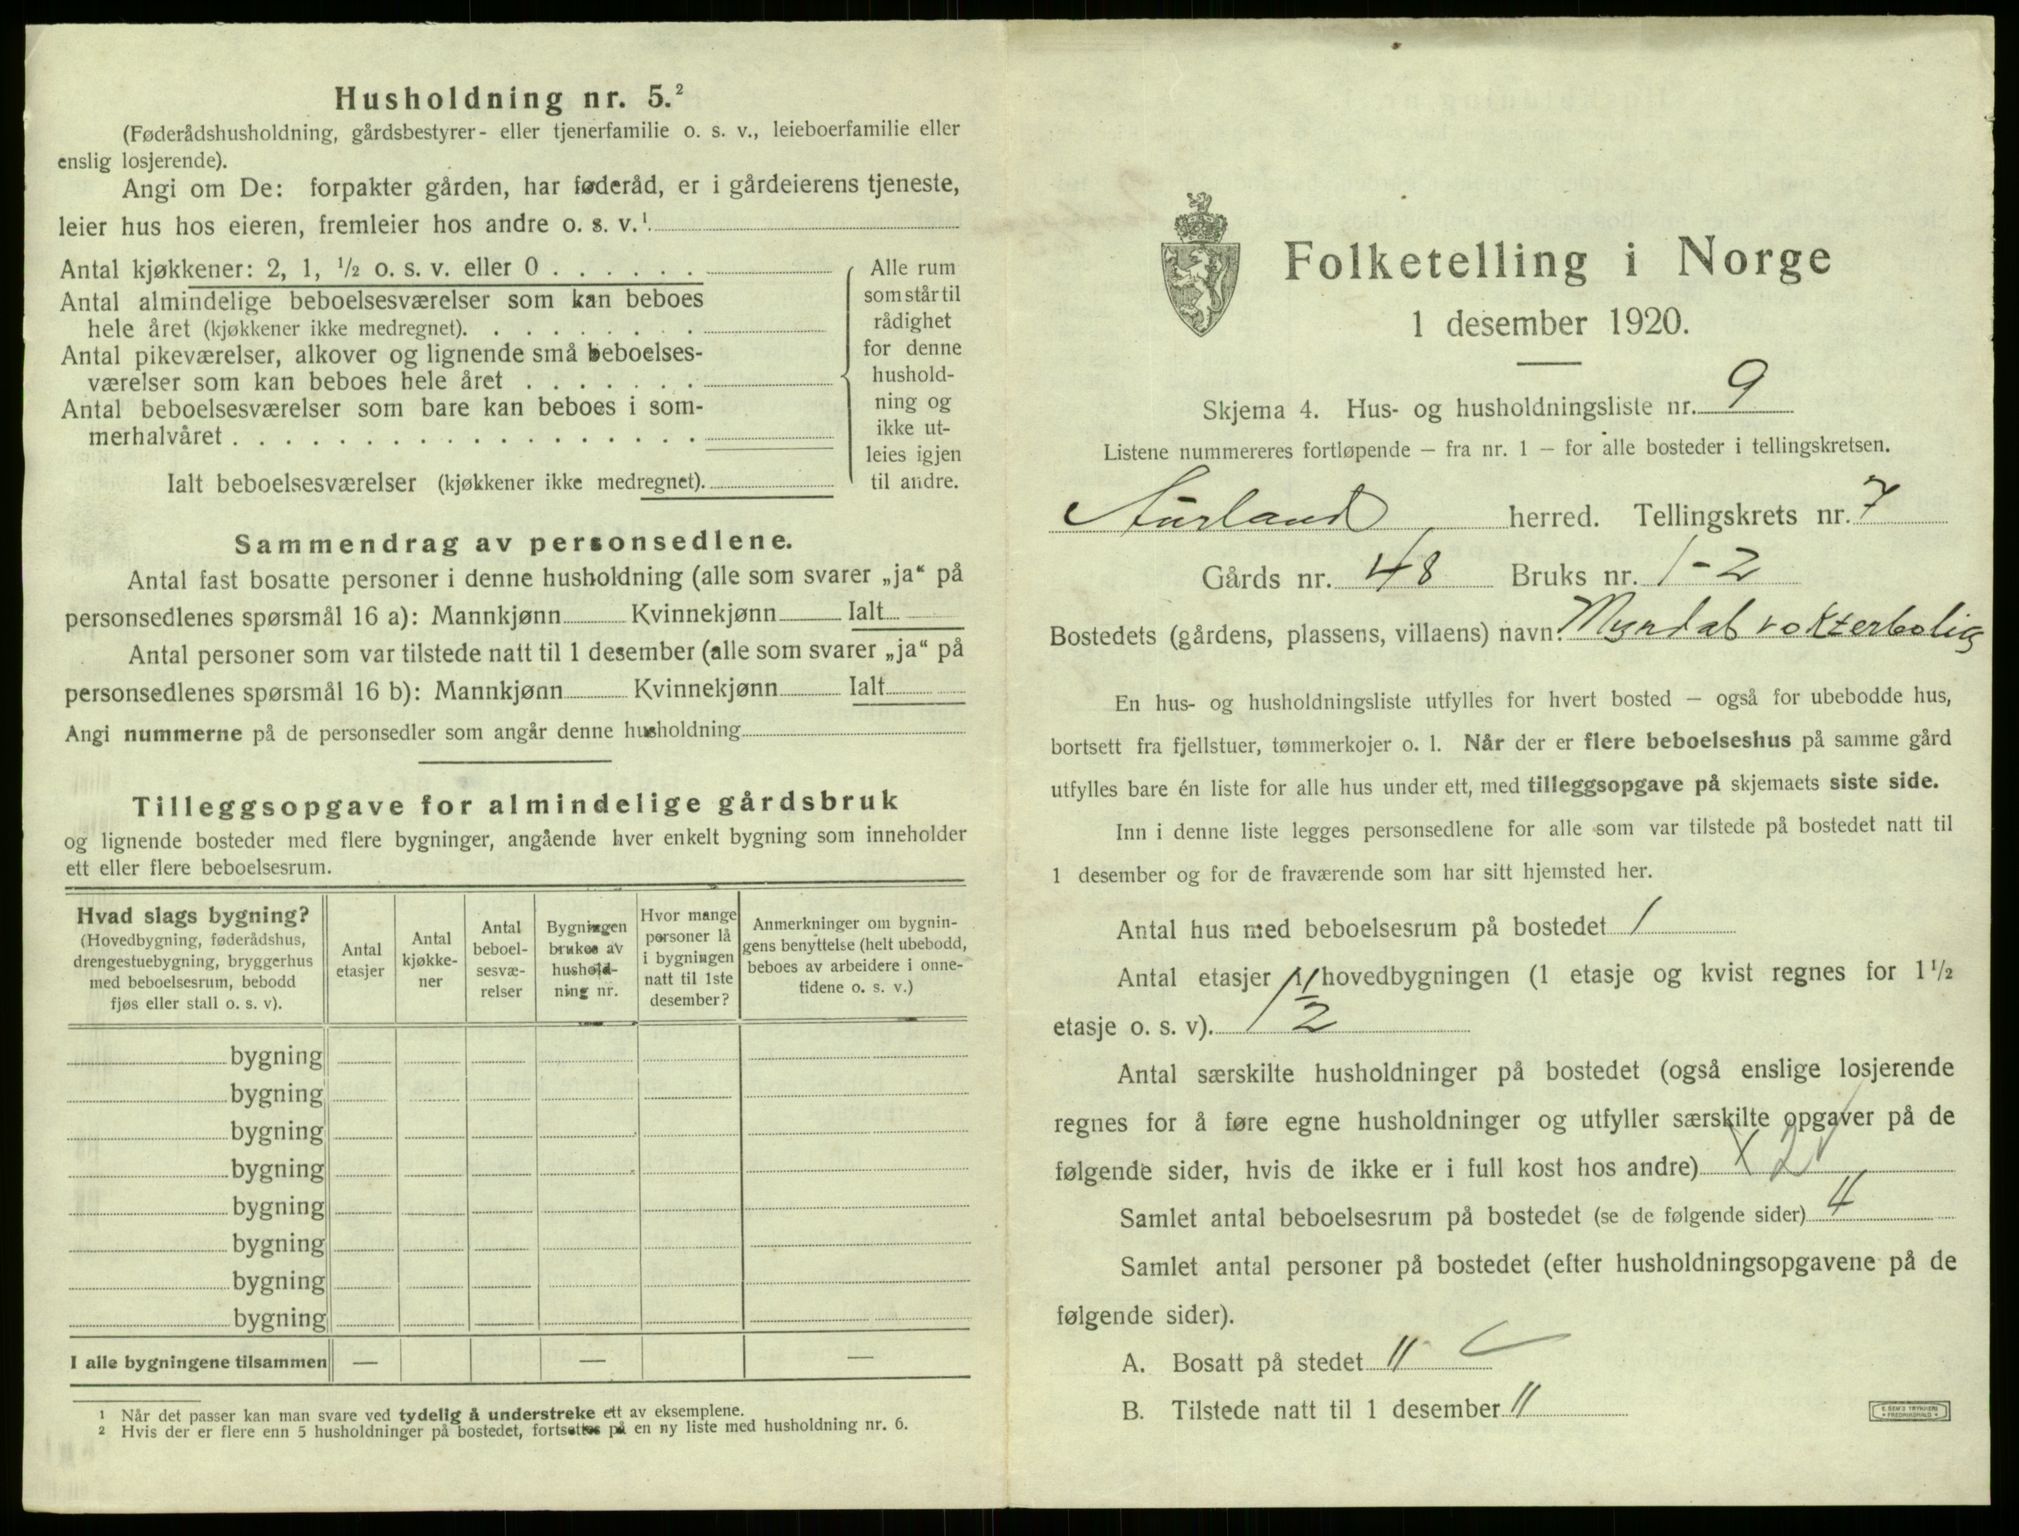 Husholdning nr. 5.²
(Føderådshusholdning, gårdsbestyrer- eller tjenerfamilie o. s. v., leieboerfamilie eller
enslig losjerende).
Angi om De: forpakter gården, har føderåd, er i gårdeierens tjeneste,
leier hus hos eieren, fremleier hos andre o. s. v.¹
Antal kjøkkener: 2, 1, ½ o. s. v. eller 0
Antal almindelige beboelsesværelser som kan beboes
hele året (kjøkkener ikke medregnet).
Antal pikeværelser, alkover og lignende små beboelses-
værelser som kan beboes hele året
Antal beboelsesværelser som bare kan beboes i som-
merhalvåret
Ialt beboelsesværelser (kjøkkener ikke medregnet).
Alle rum
som står til
rådighet
for denne
hushold-
ning og
ikke ut-
leies igjen
til andre.
Sammendrag av personsedlene.
Antal fast bosatte personer i denne husholdning (alle som svarer „ja“ på
personsedlenes spørsmål 16 a): Mannkjønn Kvinnekjønn Ialt
Antal personer som var tilstede natt til 1 desember (alle som svarer „ja“ på
personsedlenes spørsmål 16 b): Mannkjønn Kvinnekjønn Ialt
Angi nummerne på de personsedler som angår denne husholdning
Tilleggsopgave for almindelige gårdsbruk
og lignende bosteder med flere bygninger, angående hver enkelt bygning som inneholder
ett eller flere beboelsesrum.
Hvad slags bygning?
(Hovedbygning, føderådshus,
drengestuebygning, bryggerhus
med beboelsesrum, bebodd
fjøs eller stall o. s. v).
Antal
etasjer
Antal
kjøkke-
ner
Antal
beboel-
sesvæ-
relser
Bygningen
brukes av
hushold-
ning nr.
Hvor mange
personer lå
i bygningen
natt til 1ste
desember?
Anmerkninger om bygnin-
gens benyttelse (helt ubebodd,
beboes av arbeidere i onne-
tidene o. s. v.)
bygning
bygning
bygning
bygning
bygning
bygning
bygning
bygning
I alle bygningene tilsammen — — —
¹ Når det passer kan man svare ved tydelig å understreke ett av eksemplene.
² Hvis der er flere enn 5 husholdninger på bostedet, fortsettes på en ny liste med husholdning nr. 6.
Folketelling i Norge
1 desember 1920.
Skjema 4. Hus- og husholdningsliste nr. 9
Listene nummereres fortløpende – fra nr. 1 – for alle bosteder i tellingskretsen.
Aurland herred. Tellingskrets nr. 7
Gårds nr. 48 Bruks nr. 1-2
Bostedets (gårdens, plassens, villaens) navn. Myrdal vokterbolig
En hus- og husholdningsliste utfylles for hvert bosted – også for ubebodde hus,
bortsett fra fjellstuer, tømmerkojer o. l. Når der er flere beboelseshus på samme gård
utfylles bare én liste for alle hus under ett, med tilleggsopgave på skjemaets siste side.
Inn i denne liste legges personsedlene for alle som var tilstede på bostedet natt til
1 desember og for de fraværende som har sitt hjemsted her.
Antal hus med beboelsesrum på bostedet 1
Antal etasjer i hovedbygningen (1 etasje og kvist regnes for 1½
etasje o. s. v). 1½
Antal særskilte husholdninger på bostedet (også enslige losjerende
regnes for å føre egne husholdninger og utfyller særskilte opgaver på de
følgende sider, hvis de ikke er i full kost hos andre) x 2
Samlet antal beboelsesrum på bostedet (se de følgende sider) 4
Samlet antal personer på bostedet (efter husholdningsopgavene på de
følgende sider).
A. Bosatt på stedet 11
B. Tilstede natt til 1 desember 11
E. SEM'S TRYKKERI
FREDRIKSHALD